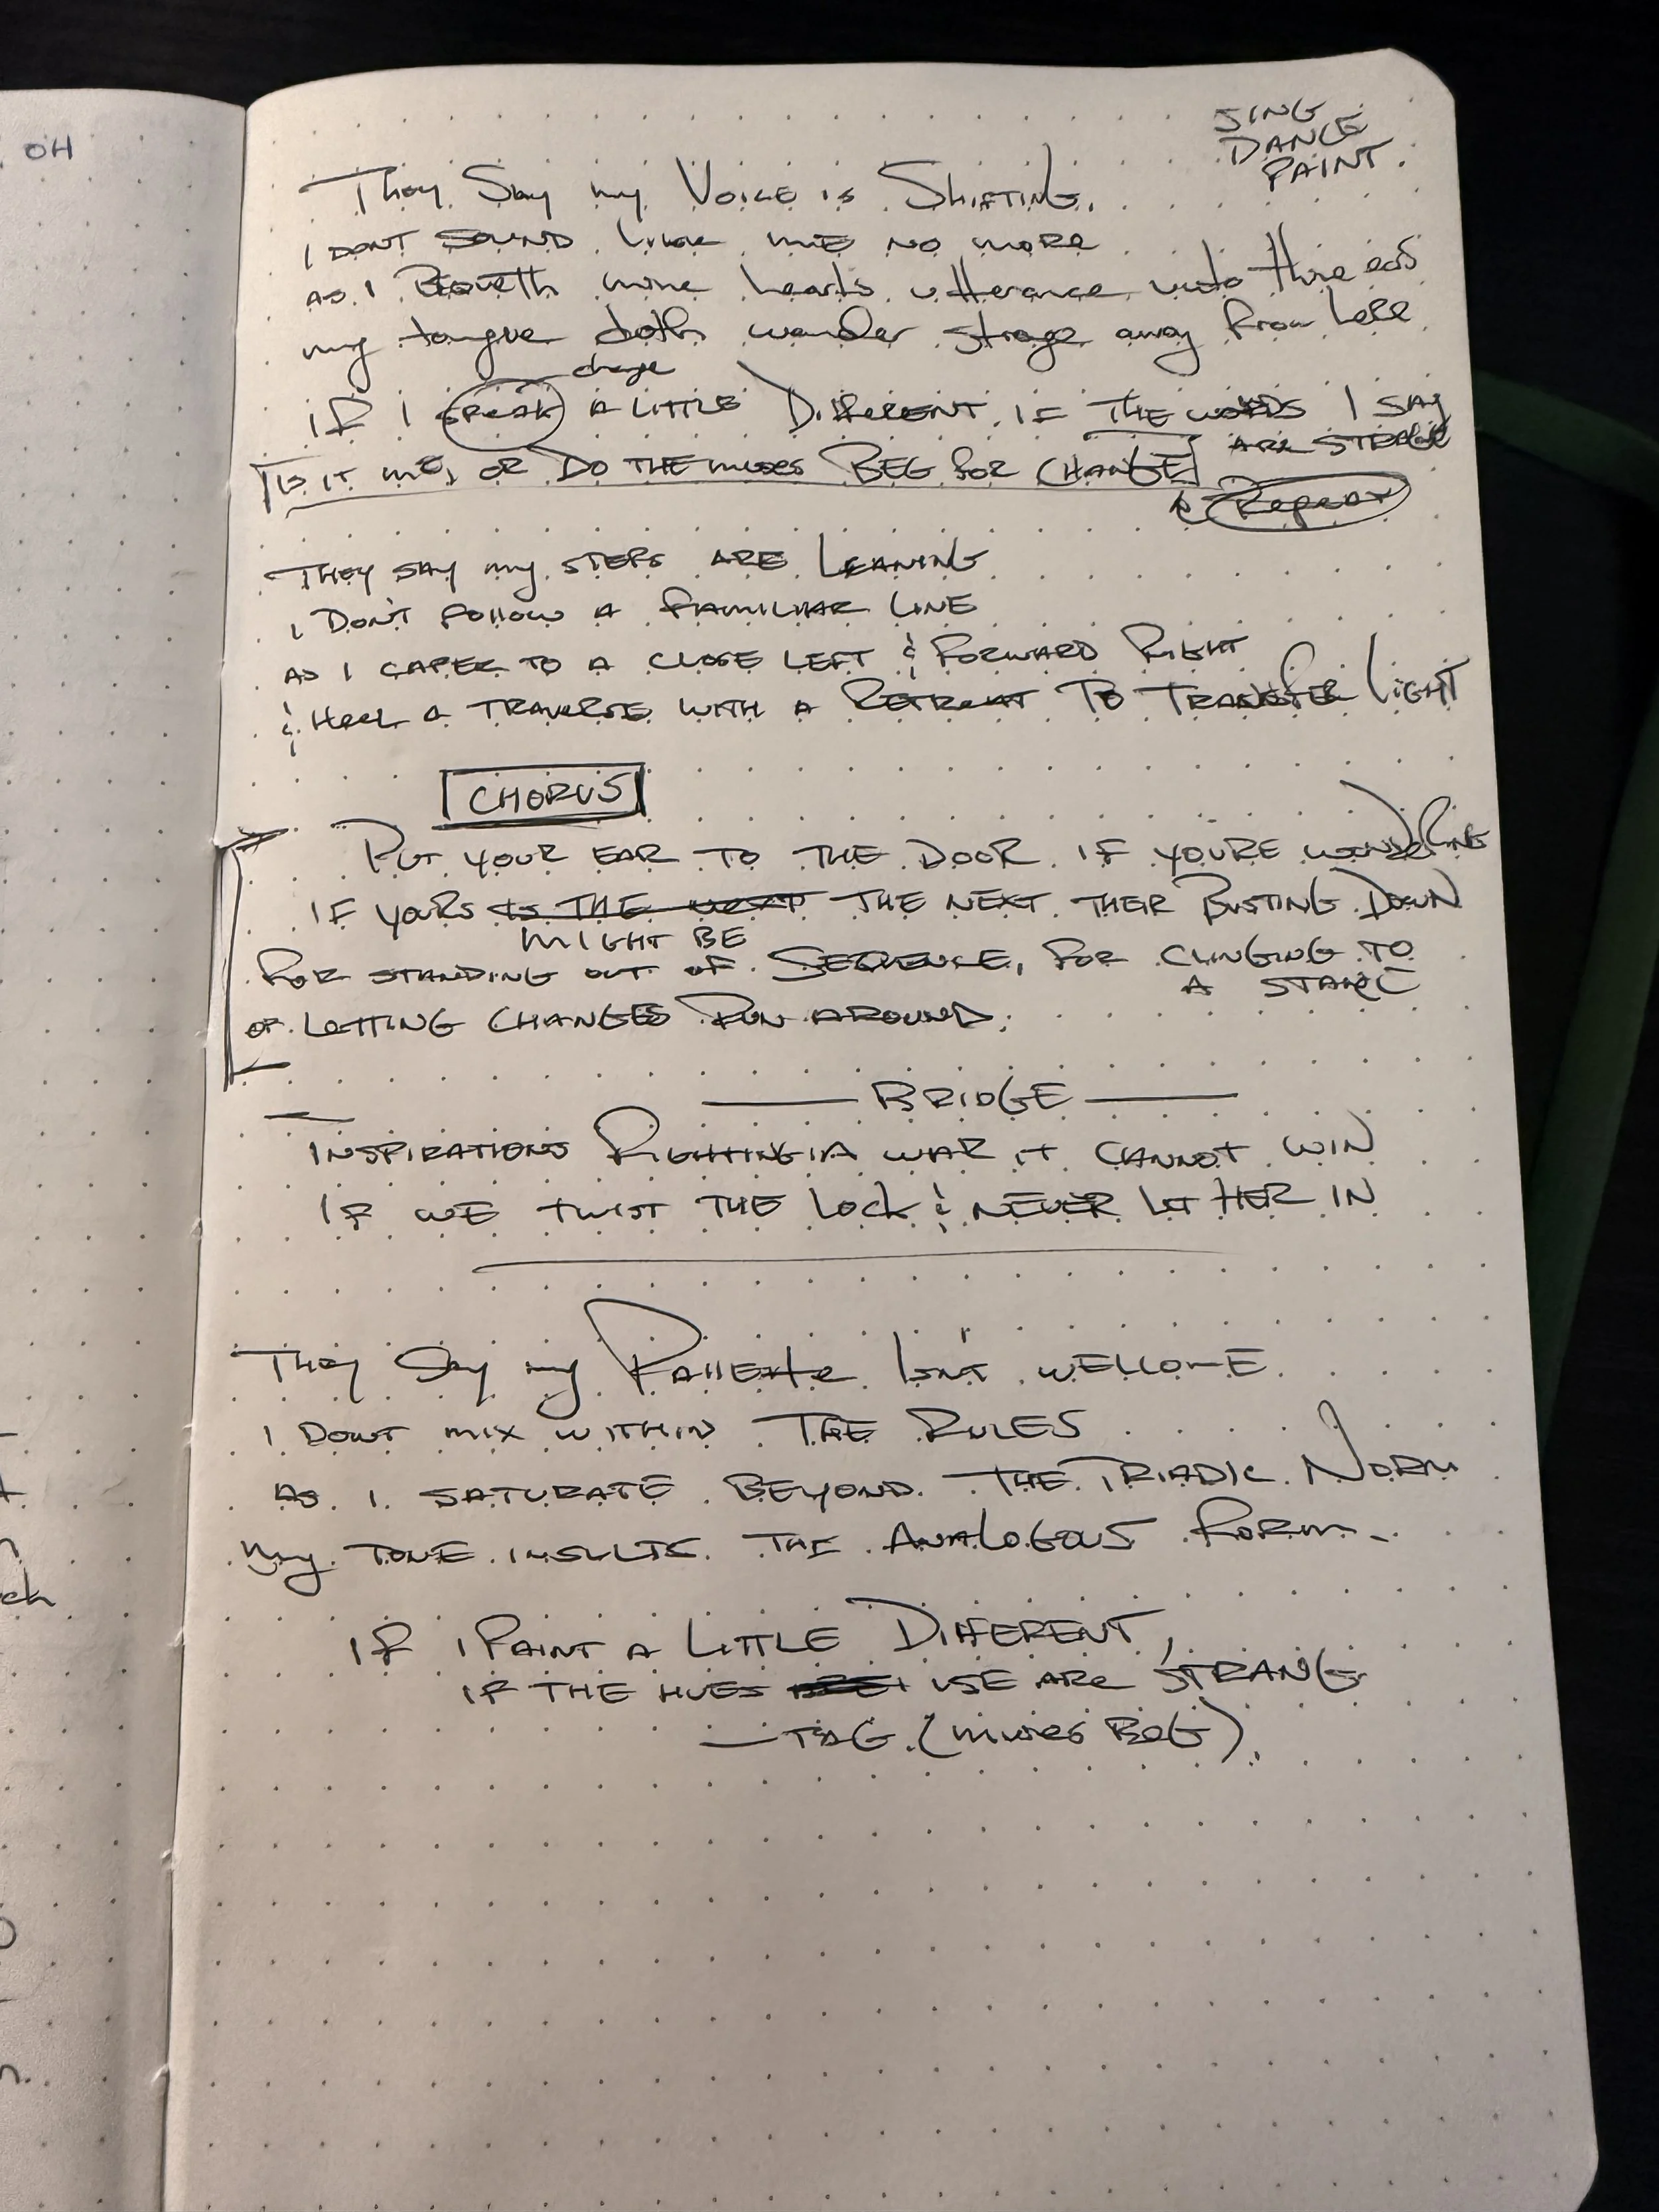 OH
SING
DANCE
PAINT.
They Say my Voice is Shifting.
I DONT SOUND like me NO MORE
as I Boweth mine hearts utterance unto thine ears
my tongue doth wander strage away from here
change
If I speak A LITTLE DIFFERENT, IF THE WORDS I SAY
ARE STRAGE
IS IT ME, OR DO THE MUSES BEG FOR CHANGE
Repeat
THEY SAY my STEPS ARE LEANING
I DON'T FOLLOW A FAMILIAR LINE
AS I CAPER TO A CLOSE LEFT & FORWARD RIGHT
& HEEL A TRAVERSE WITH A RETREAT TO TRANSFER LIGHT
CHORUS
PUT YOUR EAR TO THE DOOR IF YOURE WONDERING
IF YOURS IS THE NEXT THE NEXT THEIR BUSTING DOWN
MIGHT BE
FOR STANDING OUT OF SEQUENCE, FOR CLINGING TO
A STAKE
OR LETTING CHANGES RUN AROUND.
BRIDGE
INSPIRATIONS FIGHTING A WAR IT CANNOT WIN
IF WE TWIST THE LOCK & NEVER LET HER IN
They Say my Pallette Isn't WELCOME
I DONT MIX WITHIN THE RULES
AS I SATURATE BEYOND THE TRIADIC NORM
My TONE INSULTS THE ANALOGOUS FORM
ch
IF I PAINT A LITTLE DIFFERENT,
IF THE HUES I USE ARE STRANG
— TAG (MUSES BEG).